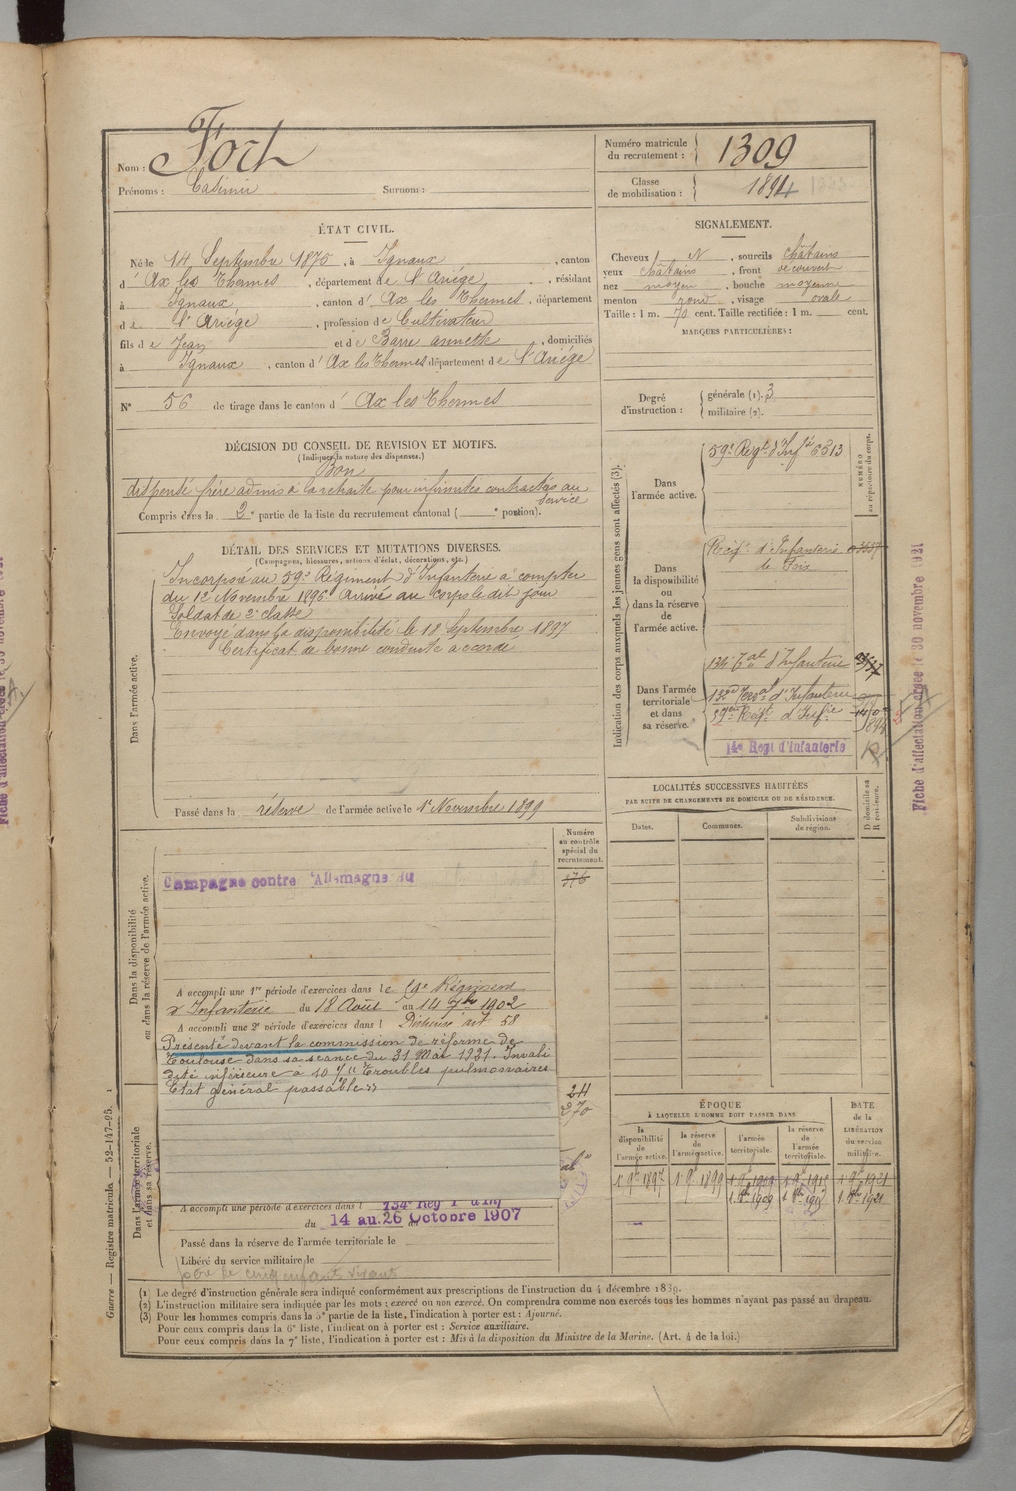 Nom : Fort
Prénoms : Casimir Surnom :
Numéro matricule du recrutement : 1309
Classe de mobilisation : 1894
ÉTAT CIVIL.
Né le 14 Septembre 1875, à Ignaux, canton
d' Ax les Thermes, département de l'Ariége, résidant
à Ignaux, canton d' Ax les Thermes, département
de l'Ariége, profession de Cultivateur
fils de Jean et de Barre annette, domiciliés
à Ignaux, canton d' Ax les Thermes département de l'Ariége
N° 56 de tirage dans le canton d' Ax les Thermes
SIGNALEMENT.
Cheveux N, sourcils châtains
yeux châtains, front découvert
nez moyen, bouche moyenne
menton rond, visage ovale
Taille : 1 m. 70 cent. Taille rectifiée : 1 m. cent.
MARQUES PARTICULIÈRES :
Degré d'instruction : générale (1). 3
militaire (2).
DÉCISION DU CONSEIL DE REVISION ET MOTIFS.
(Indiquer la nature des dispenses.)
Bon
dispensé frère admis à la retraite pour infirmités contractées au
service
Compris dans la 2e partie de la liste du recrutement cantonal ( e portion).
DÉTAIL DES SERVICES ET MUTATIONS DIVERSES.
(Campagnes, blessures, actions d'éclat, décorations, etc.)
Dans l'armée active.
Incorporé au 59e Régiment d'Infanterie à compter
du 12 Novembre 1896 Arrivé au corps le dit jour
Soldat de 2e classe
Envoyé dans la disponibilité le 18 Septembre 1897
Certificat de bonne conduite accordé
Passé dans la réserve de l'armée active le 1er Novembre 1899
Indication des corps auxquels les jeunes gens sont affectés (3).
NUMÉRO au répertoire du corps.
Dans l'armée active.
59e Regt d'Infie 6313
Dans la disponibilité ou dans la réserve de l'armée active.
Régt d'Infanterie
de Foix
Dans l'armée territoriale et dans sa réserve.
134 Tal d'Infanterie
132e Teral d'Infanterie
59eme Régt d'Infie
14e Regt d'Infanterie
LOCALITÉS SUCCESSIVES HABITÉES
PAR SUITE DE CHANGEMENTS DE DOMICILE OU DE RÉSIDENCE.
Dates. Communes. Subdivisions de région. D domicile ou R résidence.
Dans la disponibilité ou dans la réserve de l'armée active.
Numéro au contrôle spécial du recrutement.
376
Campagne contre l'Allemagne du
A accompli une 1re période d'exercices dans le 59e Régiment
d'Infanterie du 18 Août au 14 7bre 1902
A accompli une 2e période d'exercices dans l Dispense art 58
Présenté devant la commission de réforme de
Toulouse dans sa séance du 31 Mai 1921. Invali
dité inférieure à 10 % Troubles pulmonaires
Etat général passable
211
270
Dans l'armée territoriale et dans sa réserve.
A accompli une période d'exercices dans l 134e Reg T d'Inf
du 14 au 26 Octobre 1907
Passé dans la réserve de l'armée territoriale le
Libéré du service militaire le
père de cinq enfants vivants
ÉPOQUE
À LAQUELLE L'HOMME DOIT PASSER DANS
la disponibilité de l'armée active. la réserve de l'armée active. l'armée territoriale. la réserve de l'armée territoriale.
DATE de la LIBÉRATION du service militaire.
1 9bre 1897 1 9bre 1899 1 9bre 1909 1 9bre 1915 1 9bre 1921
(1) Le degré d'instruction générale sera indiqué conformément aux prescriptions de l'instruction du 4 décembre 1889.
(2) L'instruction militaire sera indiquée par les mots : exercé ou non exercé. On comprendra comme non exercés tous les hommes n'ayant pas passé au drapeau.
(3) Pour les hommes compris dans la 5e partie de la liste, l'indication à porter est : Ajourné.
Pour ceux compris dans la 6e liste, l'indication à porter est : Service auxiliaire.
Pour ceux compris dans la 7e liste, l'indication à porter est : Mis à la disposition du Ministre de la Marine. (Art. 4 de la loi.)
Guerre — Registre matricule. — 52-147-95.
Fiche d'affectation créée le 30 novembre 1921